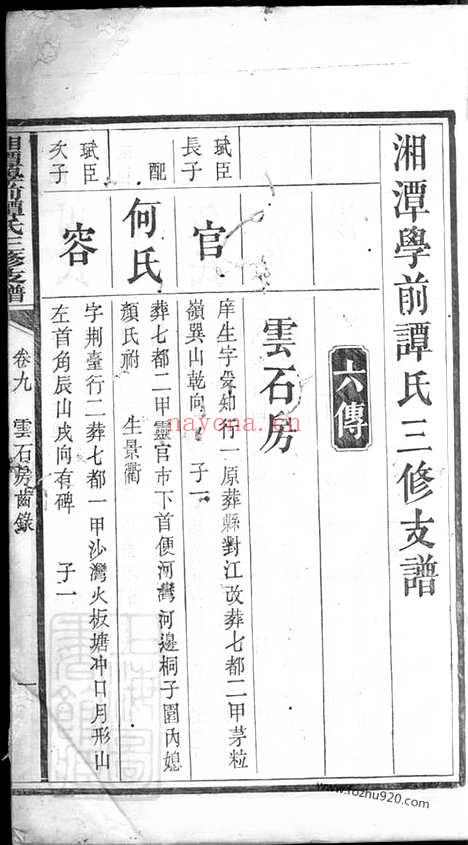 湘潭學前譚氏三修支譜
六傳
雲石房
珷臣
長子
官
庠生字受知行一原葬縣對江改葬七都二甲茅粒
嶺巽山乾向 子一
配
何氏
葬七都二甲靈官市下首便河灣河邊桐子園內媳
顏氏祔 生景衢
珷臣
次子
容
字荆臺行二葬七都一甲沙灣火板塘冲口月形山
左首角辰山戌向有碑 子一
湘潭學前譚氏三修支譜
卷九 雲石房齒錄
一
nayona.cn
www.fozhu920.com